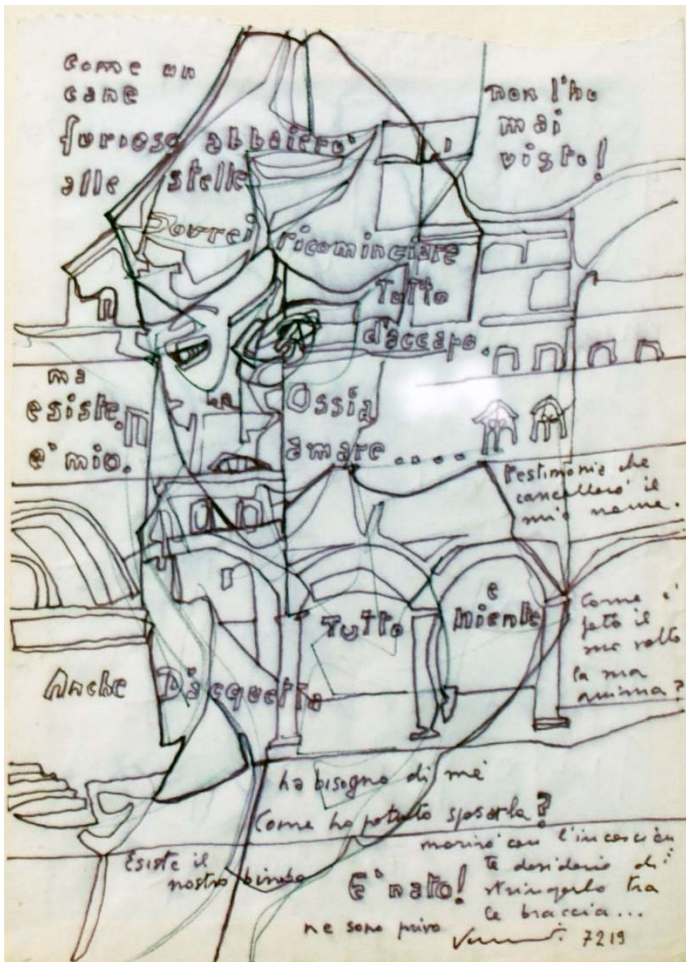 come un
cane
furioso abbaierò
alle stelle
non l'ho
mai
visto!
Vorrei ricominciare
tutto
d'accapo.
ma
esiste.
e' mio.
Ossia
amare....
testimonia che
cancellerò il
mio nome.
Tutto
e
niente
Come è
fatto il
mio volto
la mia
anima?
Anche D'acquetta
ha bisogno di me
Come ho potuto sposarla?
Esiste il
nostro bimbo
E' nato!
morirò con l'
te desiderio di
stringerlo tra
le braccia...
ne sono privo
7219